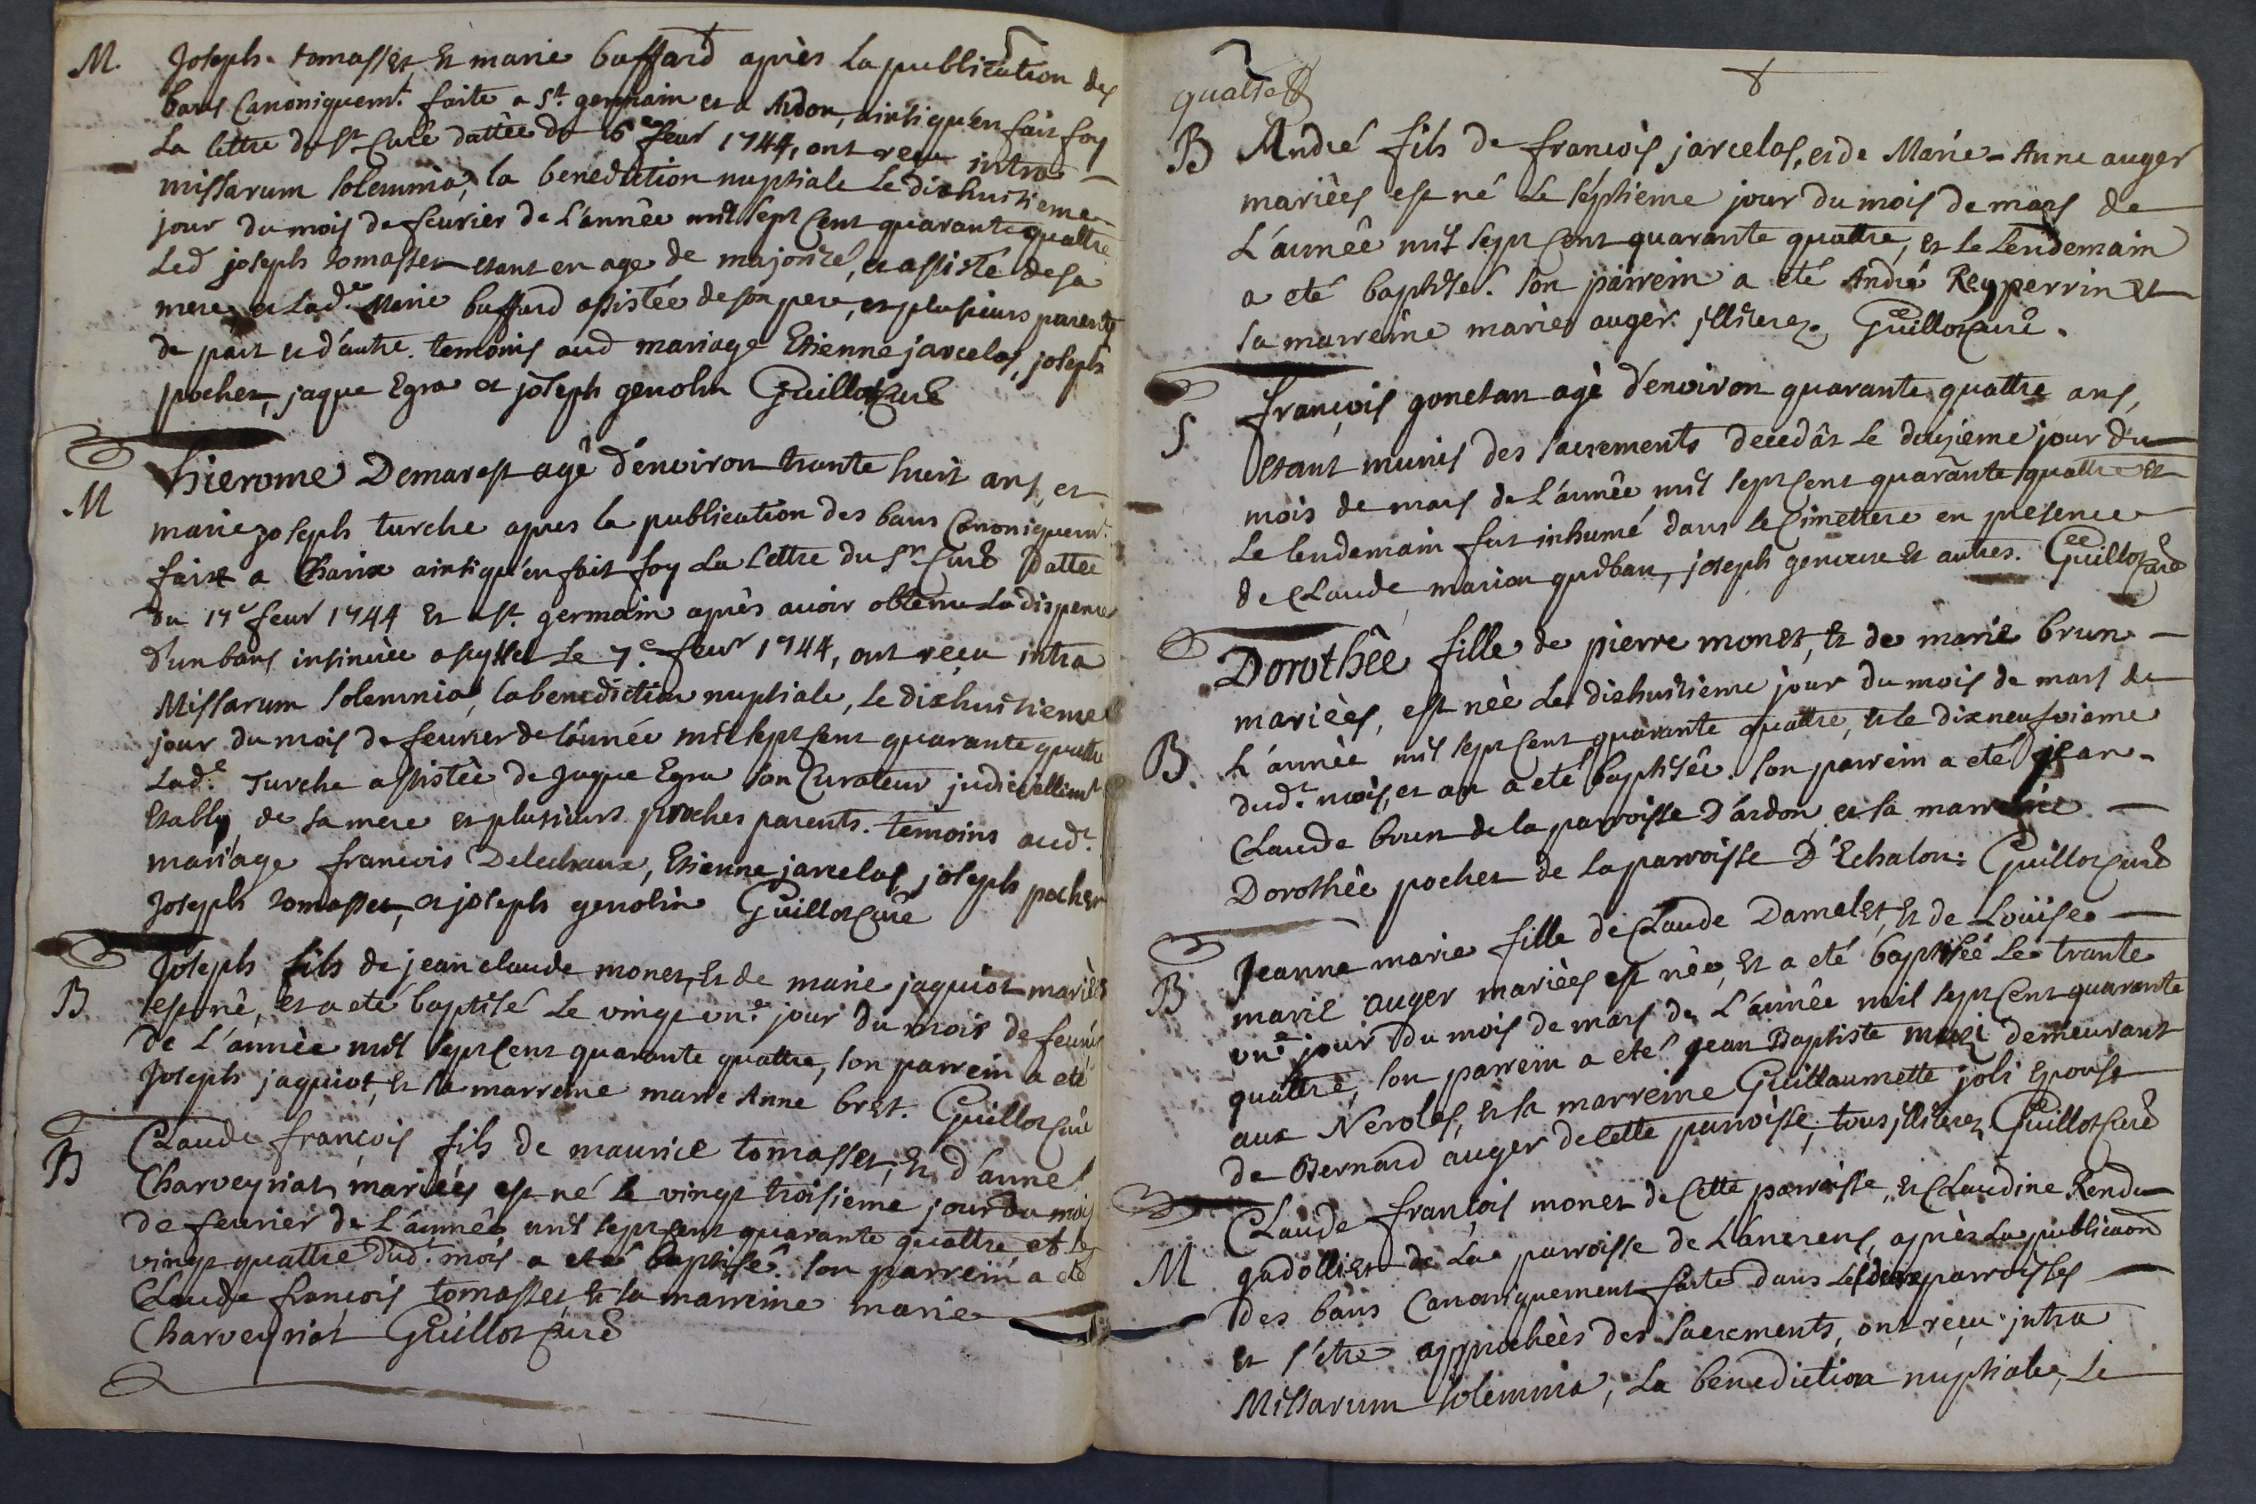 M. Joseph tomasset, et marie buffard après la publication des
bans Canoniquemt. faite a St. germain et a Ardon, ainsi qu'en fait foy
la lettre du Sr Curé dattée du 16e feur 1744, ont reçu intra
missarum solemnia, la benediction nuptiale le dixhuitieme
jour du mois de feurier de l'année mil sept cent quarante quattre
Led joseph tomasset etant en age de majorité, et assisté de sa
mere, et lade. Marie buffard assistée de son pere, et plusieurs parents
de part et d'autre. temoins aud mariage Etienne jarcelas, joseph
pochet, jaque Egra et joseph genolin Guillot Curé
M hierome Demarest agé d'environ trante huit ans, et
marie joseph turche apres la publication des bans Canoniquemt.
faite a Charix ainsi qu'en fait foy la lettre du Sr. Curé dattée
du 17e feur 1744 et a St. germain après avoir obtenu la dispence
d'un bans insinuée a seyssel le 7e. feur 1744, ont réçu intra
Missarum solemnia, la benediction nuptiale, le dixhuitieme
jour du mois de feurier de l'année mil sept cent quarante quattre
Lade. Turche assistée de Jaque Egra son Curateur judiciellemt
Etably, de sa mere et plusieurs proches parents. temoins audt.
mariage francois Delechaux, Etienne jarcelas, joseph pochet
Joseph tomasset, et joseph genolin Guillot Curé
B Joseph fils de jean claude monet, et de marie jaquiot mariés
est né, et a eté baptisé le vingt une. jour du mois de feurier
de L'année mil sept cent quarante quattre, son parrein a eté
Joseph jaquiot, et sa marreine marie Anne bret. Guillot Curé
B Claude françois fils de maurice tomasset, et d'anne
Charveyriat, mariés est né le vingt troisieme jour du mois
de feurier de L'année mil sept cent quarante quattre, et le
vingt quattre dudt. mois a eté baptisé. son parrein a eté
Claude françois tomasset, et sa marreine marie
Charveyriat Guillot Curé
quatre
B André fils de françois jarcelas, et de Marie-Anne auger
mariées est né le séptieme jour du mois de mars de
L'année mil sept cent quarante quattre, et le lendemain
a eté baptisé. son parrein a eté André Reyperrin et
sa marreine marie auger. jllitérez. Guillot Curé.
S françois gonetan agé d'environ quarante quattre ans,
etant munis des sacrements decedât le douzieme jour du
mois de mars de L'année mil sept cent quarante quattre et
Le lendemain fut inhumé dans le Cimettiere en presence
de Claude marion, joseph et autres. Guillot Curé
B Dorothée fille de pierre monet, et de marie brun
mariées, est née le dixhuitieme jour du mois de mars de
L'année mil sept cent quarante quattre, et le dixneufvieme
dudt. mois, et an a eté baptisée. son parrein a eté jean-
Claude brun de la parroisse D'ardon, et sa marreine
Dorothée pochet de la parroisse D'Echalon: Guillot Curé
B Jeanne marie fille de Claude Damelet, et de Loüise
marie auger mariées est née, et a eté baptisée le trante
une jour du mois de mars de L'année mil sept cent quarante
quattre, son parrein a eté jean Baptiste demeurant
aux Neroles, et sa marreine Guillaumette joli Epouse
de Bernard auger de Cette parroisse, tous jllitérez. Guillot Curé
M Claude françois monet de Cette parroisse, et Claudine Rendu
gudollier de La parroisse de Lancrens, après la publicaon
des bans Canoniquement faite dans les deux parroisses
et s'etre approchées des sacrements, ont réçu jntra
Missarum solemnia, la benediction nuptiale, le